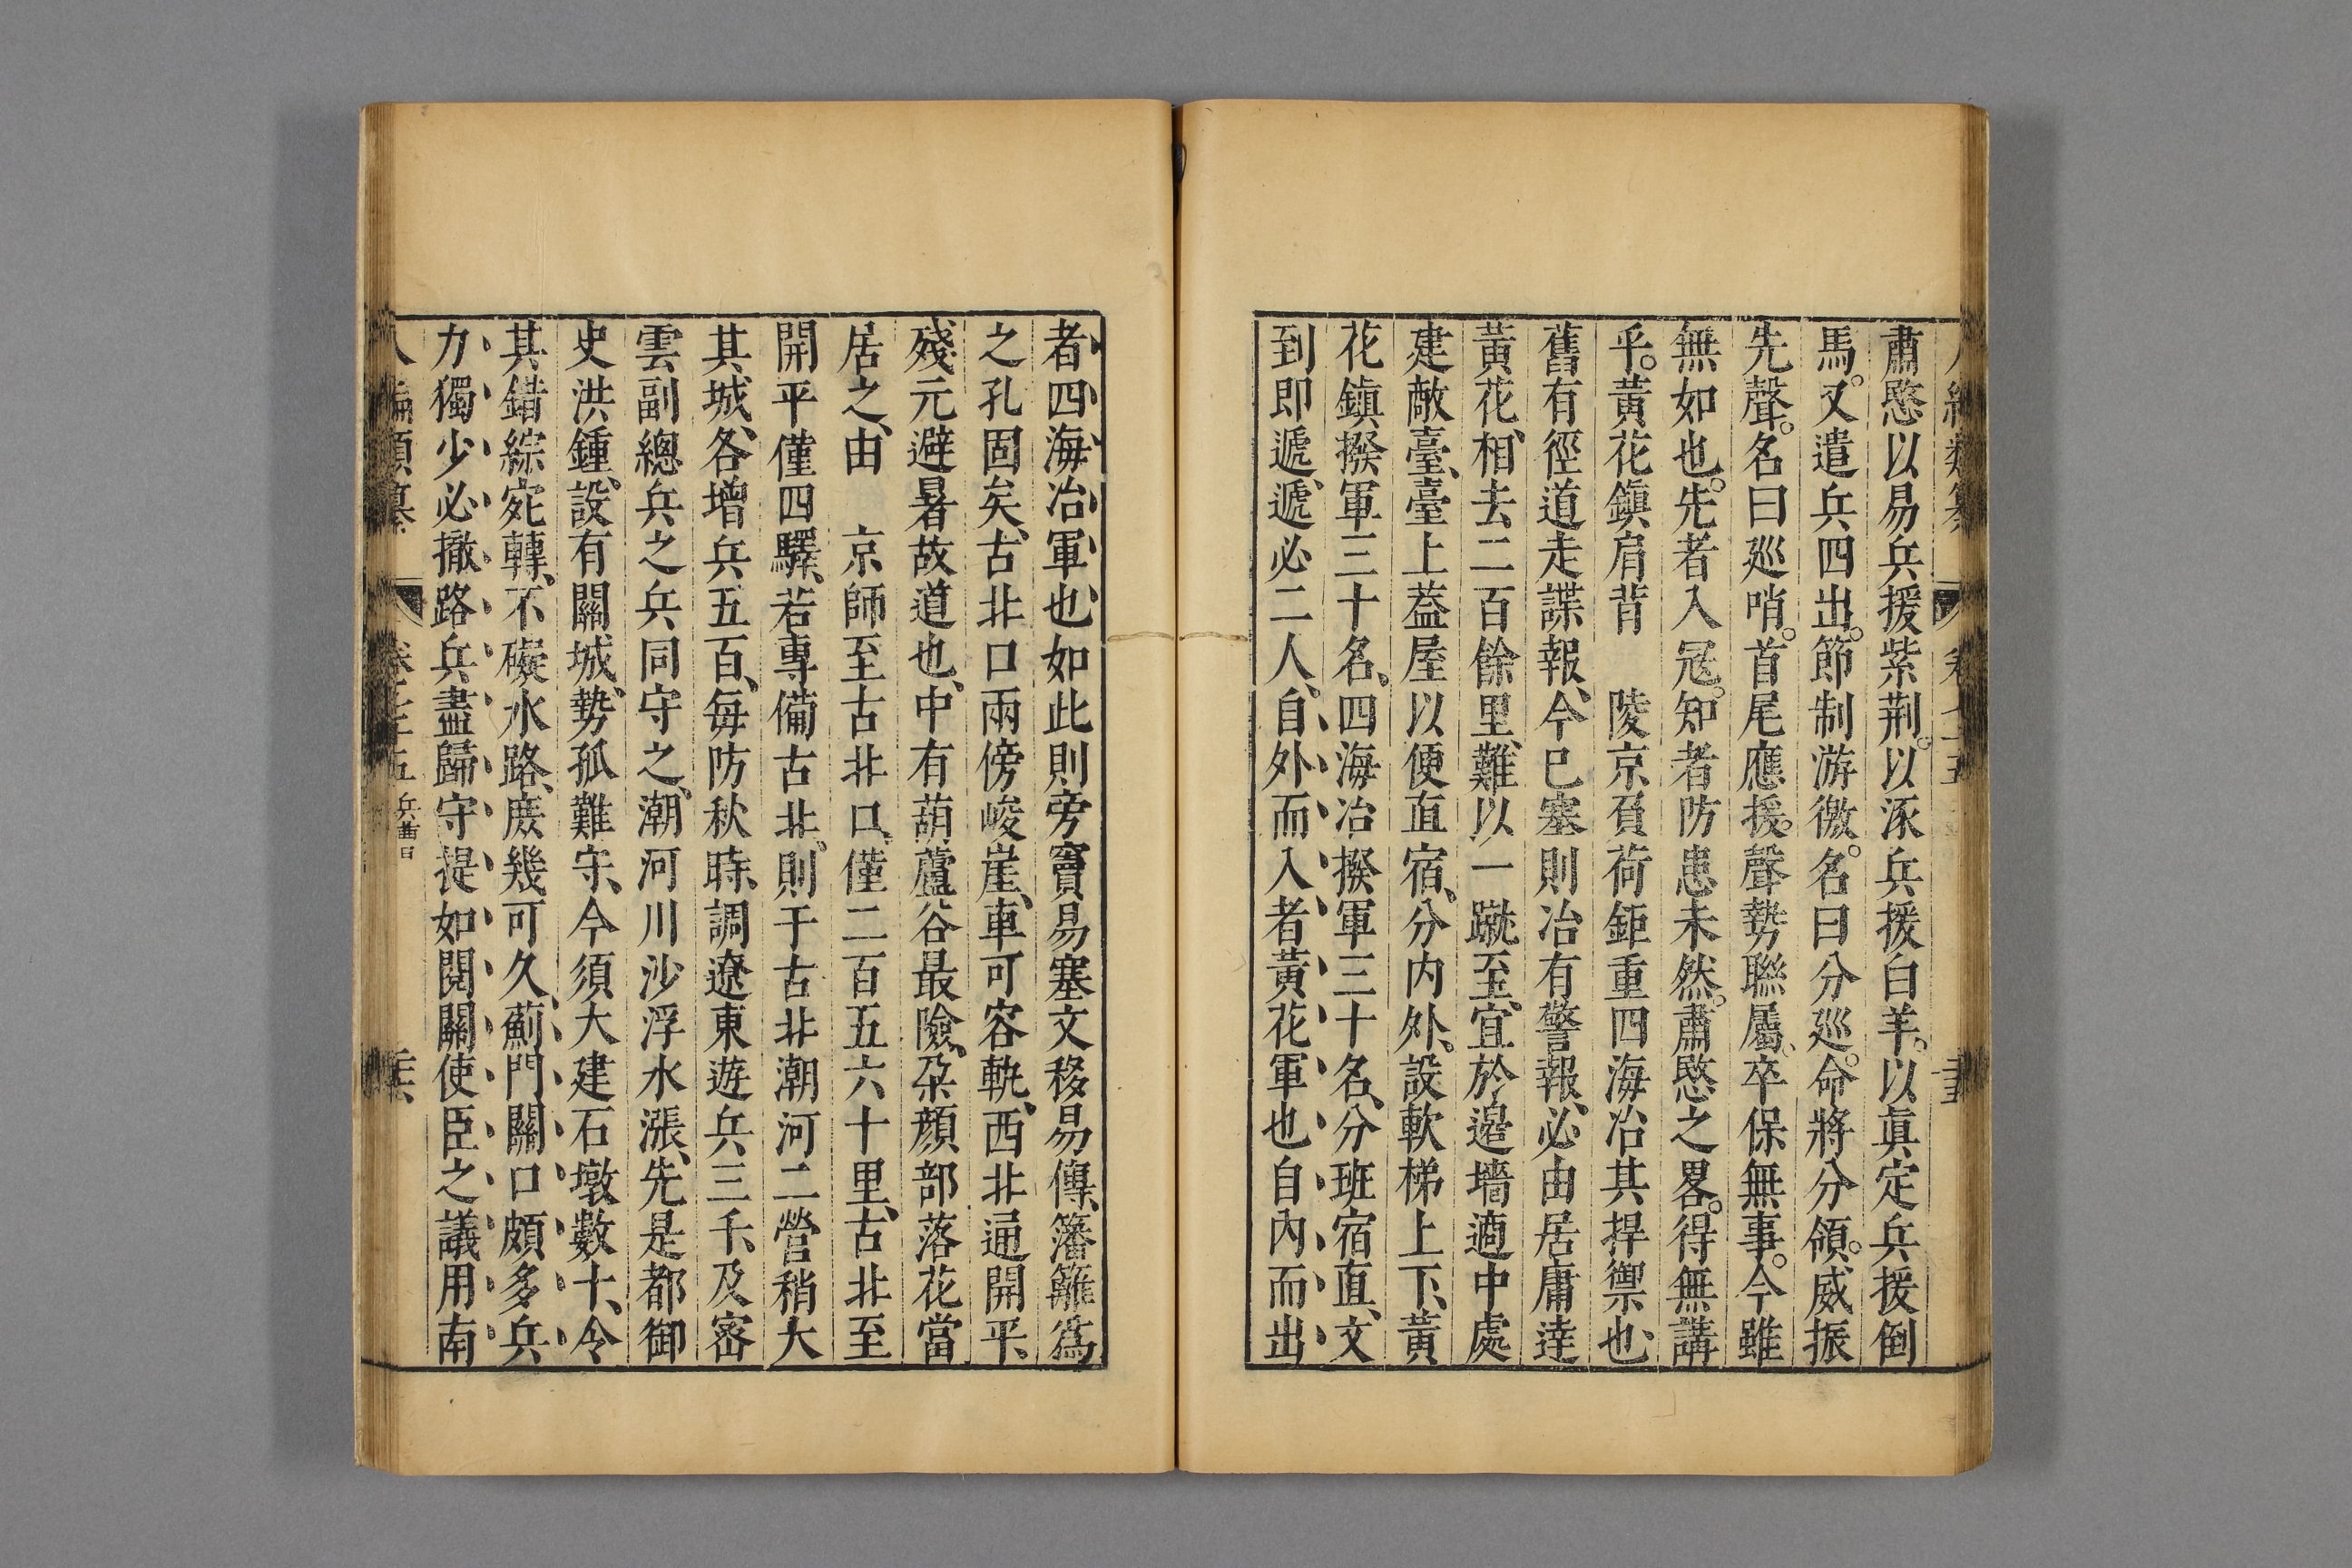 肅愍以易兵援紫荆。以涿兵援白羊。以眞定兵援倒
馬。又遣兵四出。節制游徼。名曰分廵。命將分領。威振
先聲。名曰廵哨。首尾應援。聲勢聯屬。卒保無事。今雖
無如也。先者入冦。知者防患未然。肅愍之畧。得無講
乎。黃花鎭肩背　陵京負荷鉅重四海冶其捍禦也、
舊有徑道走諜報、今已塞則冶有警報、必由居庸達
黃花、相去二百餘里、難以一蹴至、宜於邉墻適中處
建敵臺、臺上葢屋以便直宿、分内外、設軟梯上下、黃
花鎭撥軍三十名、四海冶撥軍三十名、分班宿直、文
到即遞、遞必二人、自外而入者黃花軍也自內而出
者四海冶軍也如此則旁竇易塞文移易傳、籓籬爲
之孔固矣、古北口兩傍峻崖、車可容軌、西北通開平、
殘元避暑故道也、中有葫蘆谷最險、朶顔部落花當
居之、由　京師至古北口、僅二百五六十里、古北至
開平僅四驛、若專備古北、則于古北潮河二營稍大
其城、各增兵五百、每防秋時、調遼東遊兵三千、及密
雲副總兵之兵同守之、潮河川沙浮水漲、先是都御
史洪鍾、設有關城、勢孤難守、今須大建石墩數十、令
其錯綜宛轉、不礙水路、庻幾可久、薊門關口頗多兵
力獨少必撤路兵盡歸守提如閱關使臣之議用南
八編類纂　卷之七十五　兵曹